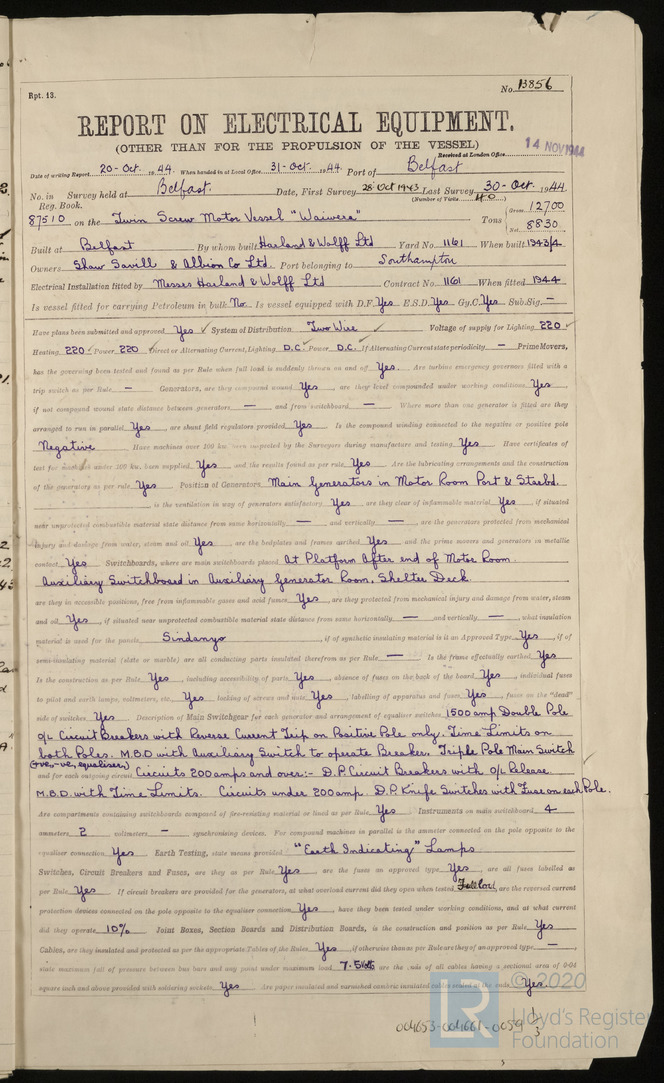 Rpt. 13.
No. 13856
REPORT ON ELECTRICAL EQUIPMENT.
(OTHER THAN FOR THE PROPULSION OF THE VESSEL)
Received at London Office 14 NOV 1944
Date of writing Report 20-Oct. 1944. When handed in at Local Office 31-Oct. 1944. Port of Belfast
No. in Survey held at Belfast. Date, First Survey 28 Oct 1943 Last Survey 30-Oct. 1944.
Reg. Book. (Number of Visits 40)
87510 on the Twin Screw Motor Vessel "Waiwera" Tons { Gross 12700
Net 8830
Built at Belfast By whom built Harland & Wolff Ltd Yard No. 1161 When built 1943/4
Owners Shaw Savill & Albion Co Ltd. Port belonging to Southampton
Electrical Installation fitted by Messrs Harland & Wolff Ltd Contract No. 1161 When fitted 1944
Is vessel fitted for carrying Petroleum in bulk No. Is vessel equipped with D.F. Yes E.S.D. Yes Gy.C. Yes Sub.Sig. —
Have plans been submitted and approved Yes ✓ System of Distribution Two Wire ✓ Voltage of supply for Lighting 220 ✓
Heating 220 ✓ Power 220 ✓ Direct or Alternating Current, Lighting D.C. ✓ Power D.C. If Alternating Current state periodicity — Prime Movers,
has the governing been tested and found as per Rule when full load is suddenly thrown on and off Yes. Are turbine emergency governors fitted with a
trip switch as per Rule — Generators, are they compound wound Yes, are they level compounded under working conditions Yes,
if not compound wound state distance between generators — and from switchboard — Where more than one generator is fitted are they
arranged to run in parallel Yes, are shunt field regulators provided Yes Is the compound winding connected to the negative or positive pole
Negative Have machines over 100 kw. been inspected by the Surveyors during manufacture and testing Yes Have certificates of
test for machines under 100 kw. been supplied Yes and the results found as per rule Yes Are the lubricating arrangements and the construction
of the generators as per rule Yes Position of Generators Main Generators in Motor Room Port & Starbd.
is the ventilation in way of generators satisfactory Yes are they clear of inflammable material Yes, if situated
near unprotected combustible material state distance from same horizontally — and vertically —, are the generators protected from mechanical
injury and damage from water, steam and oil Yes, are the bedplates and frames earthed Yes and the prime movers and generators in metallic
contact Yes Switchboards, where are main switchboards placed At Platform After end of Motor Room.
Auxiliary Switchboard in Auxiliary Generator Room, Shelter Deck
are they in accessible positions, free from inflammable gases and acid fumes Yes, are they protected from mechanical injury and damage from water, steam
and oil Yes, if situated near unprotected combustible material state distance from same horizontally — and vertically —, what insulation
material is used for the panels Sindanyo, if of synthetic insulating material is it an Approved Type Yes, if of
semi-insulating material (slate or marble) are all conducting parts insulated therefrom as per Rule — Is the frame effectually earthed Yes
Is the construction as per Rule Yes, including accessibility of parts Yes, absence of fuses on the back of the board Yes, individual fuses
to pilot and earth lamps, voltmeters, etc. Yes locking of screws and nuts Yes, labelling of apparatus and fuses Yes, fuses on the "dead"
side of switches Yes Description of Main Switchgear for each generator and arrangement of equaliser switches 1500 amp Double Pole
O/L Circuit Breakers with Reverse Current Trip on Positive Pole only. Time Limits on
both Poles. M.B.O with Auxiliary Switch to operate Breaker. Triple Pole Main Switch
(+ve, -ve, equaliser)
and for each outgoing circuit Circuits 200 amps and over:- D.P. Circuit Breakers with O/L Release
M.B.O. with Time Limits. Circuits under 200 amp. D.P. Knife Switches with Fuse on each Pole.
Are compartments containing switchboards composed of fire-resisting material or lined as per Rule Yes Instruments on main switchboard 4
ammeters 2 voltmeters — synchronising devices. For compound machines in parallel is the ammeter connected on the pole opposite to the
equaliser connection Yes Earth Testing, state means provided "Earth Indicating" Lamps
Switches, Circuit Breakers and Fuses, are they as per Rule Yes are the fuses an approved type Yes, are all fuses labelled as
per Rule Yes If circuit breakers are provided for the generators, at what overload current did they open when tested Full load, are the reversed current
protection devices connected on the pole opposite to the equaliser connection Yes, have they been tested under working conditions, and at what current
did they operate 10% Joint Boxes, Section Boards and Distribution Boards, is the construction and position as per Rule Yes
Cables, are they insulated and protected as per the appropriate Tables of the Rules Yes, if otherwise than as per Rule are they of an approved type —,
state maximum fall of pressure between bus bars and any point under maximum load 7.5 volts are the ends of all cables having a sectional area of 0·04
square inch and above provided with soldering sockets Yes Are paper insulated and varnished cambric insulated cables sealed at the ends Yes.
© 2020
LR Lloyd's Register
Foundation
004653-004661-0059 1/3